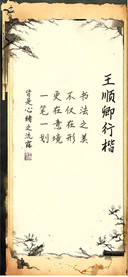 王顺卿行楷
书法之美
不仅在形
更在意境
一笔一划
皆是心绪之流露